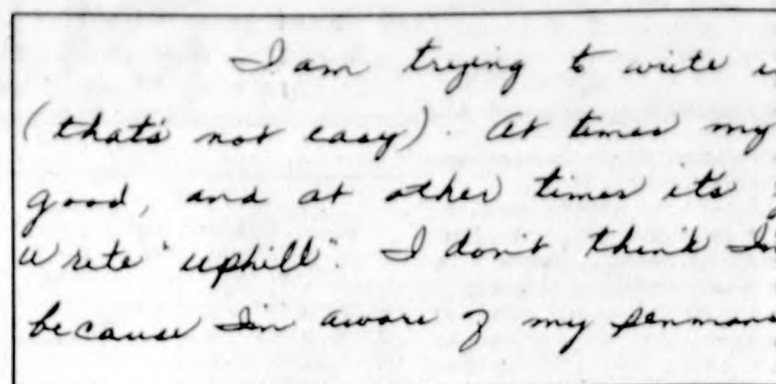 I am trying to write
(that's not easy). At times my
good, and at other times its
write "uphill". I don't think I'm
because I'm aware of my penmans